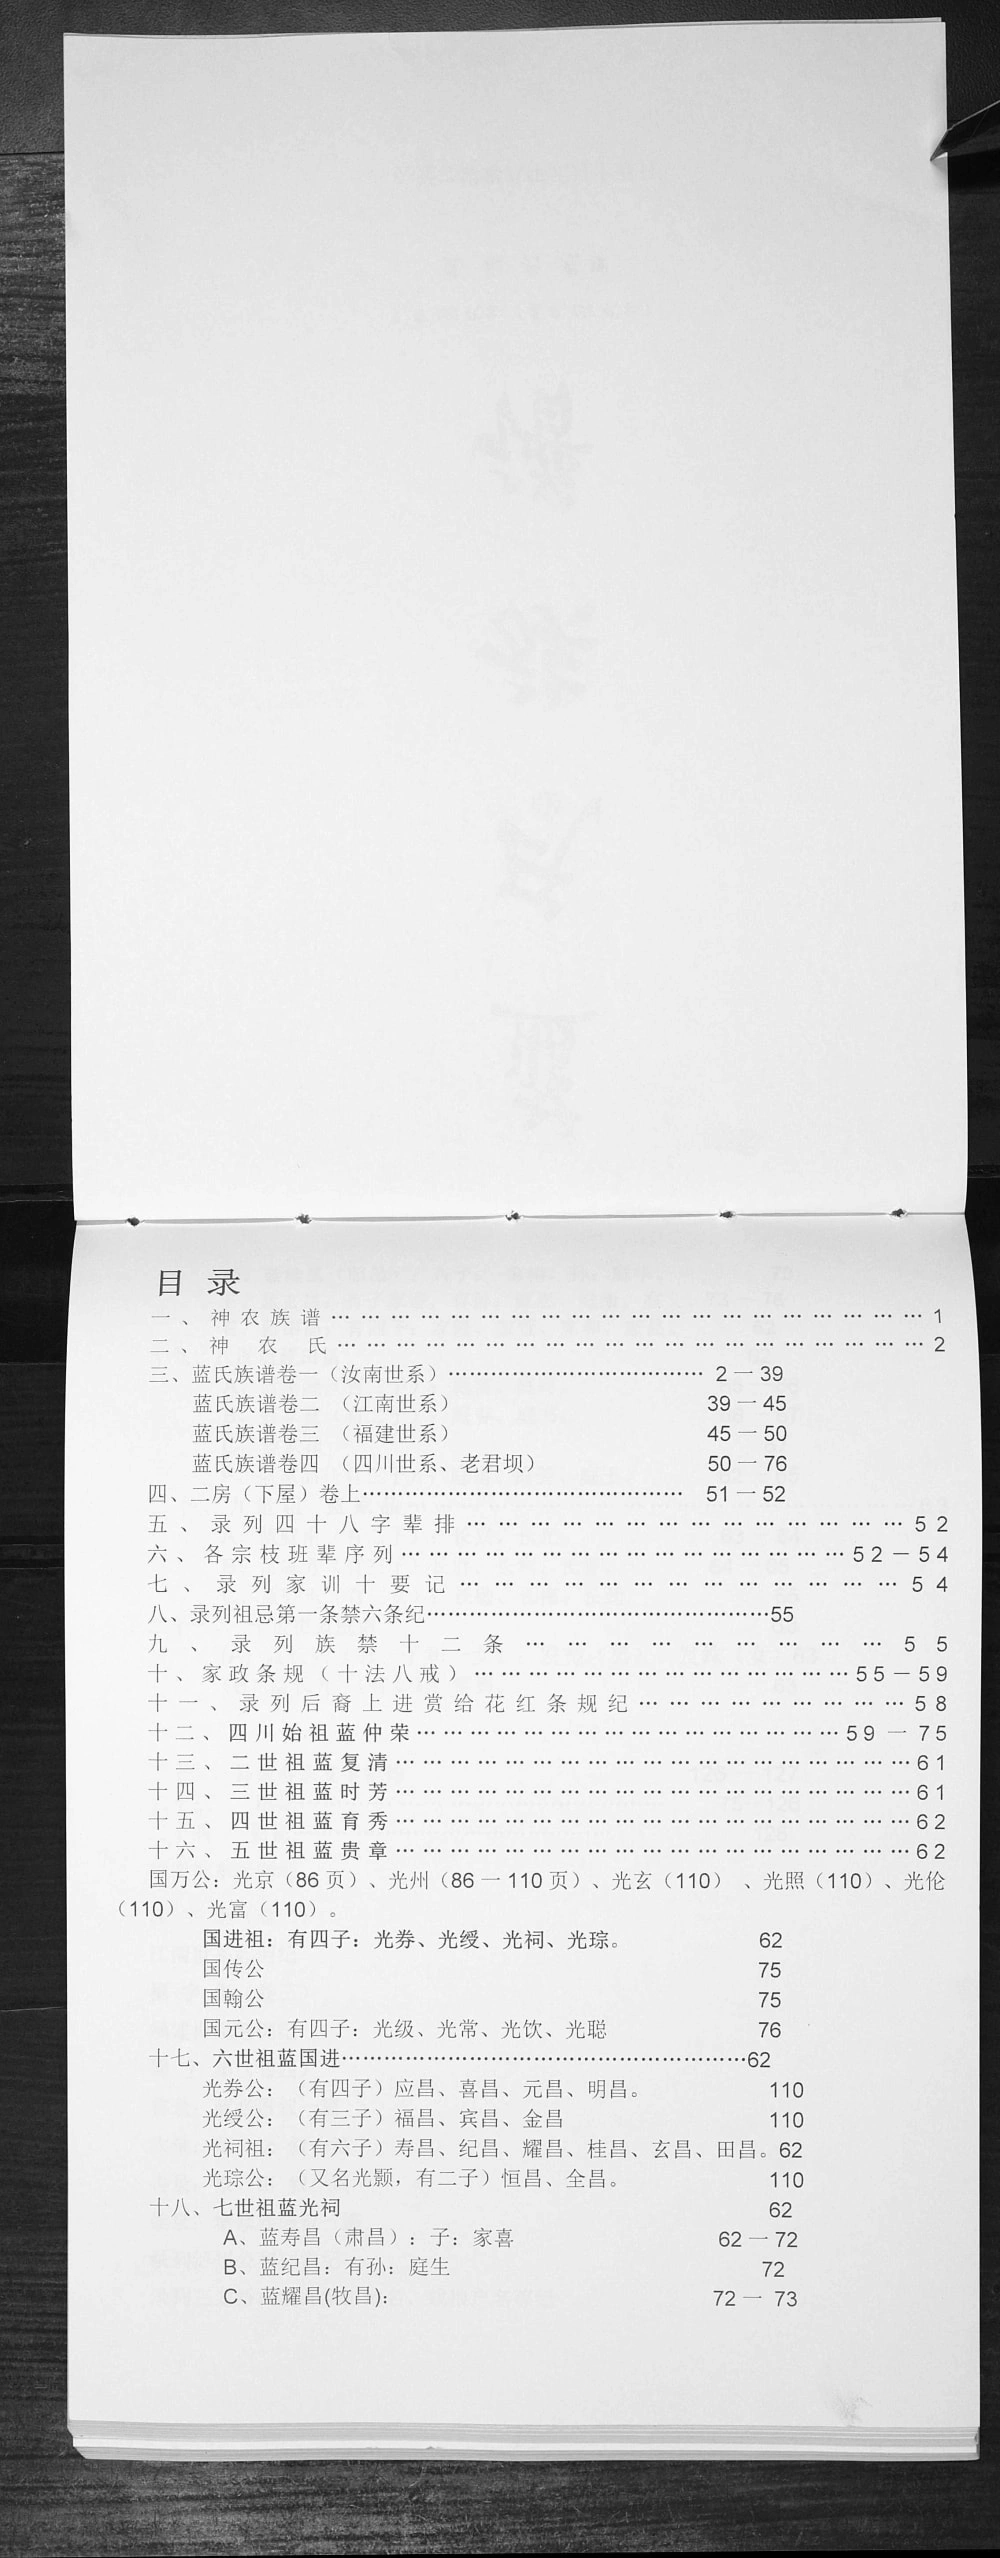 目 录
一、神农族谱………………………………………………………1
二、神 农 氏………………………………………………………2
三、蓝氏族谱卷一（汝南世系）……………………………… 2一39
蓝氏族谱卷二 （江南世系） 39一45
蓝氏族谱卷三 （福建世系） 45一50
蓝氏族谱卷四 （四川世系、老君坝） 50一76
四、二房（下屋）卷上……………………………………… 51一52
五、录列四十八字辈排………………………………………52
六、各宗枝班辈序列…………………………………………52－54
七、录列家训十要记…………………………………………54
八、录列祖忌第一条禁六条纪…………………………………………55
九、录列族禁十二条…………………………55
十、家政条规（十法八戒）……………………………………55－59
十一、录列后裔上进赏给花红条规纪…………………………58
十二、四川始祖蓝仲荣………………………………………59 一 75
十三、二世祖蓝复清…………………………………………………61
十四、三世祖蓝时芳…………………………………………………61
十五、四世祖蓝育秀…………………………………………………62
十六、五世祖蓝贵章…………………………………………………62
国万公：光京（86 页）、光州（86 一 110 页）、光玄（110） 、光照（110）、光伦
（110）、光富（110）。
国进祖：有四子：光券、光绶、光祠、光琮。 62
国传公 75
国翰公 75
国元公：有四子：光级、光常、光饮、光聪 76
十七、六世祖蓝国进…………………………………………………62
光券公：（有四子）应昌、喜昌、元昌、明昌。 110
光绶公：（有三子）福昌、宾昌、金昌 110
光祠祖：（有六子）寿昌、纪昌、耀昌、桂昌、玄昌、田昌。62
光琮公：（又名光颢，有二子）恒昌、全昌。 110
十八、七世祖蓝光祠 62
A、蓝寿昌（肃昌）：子：家喜 62 一 72
B、蓝纪昌：有孙：庭生 72
C、蓝耀昌(牧昌)： 72 一 73